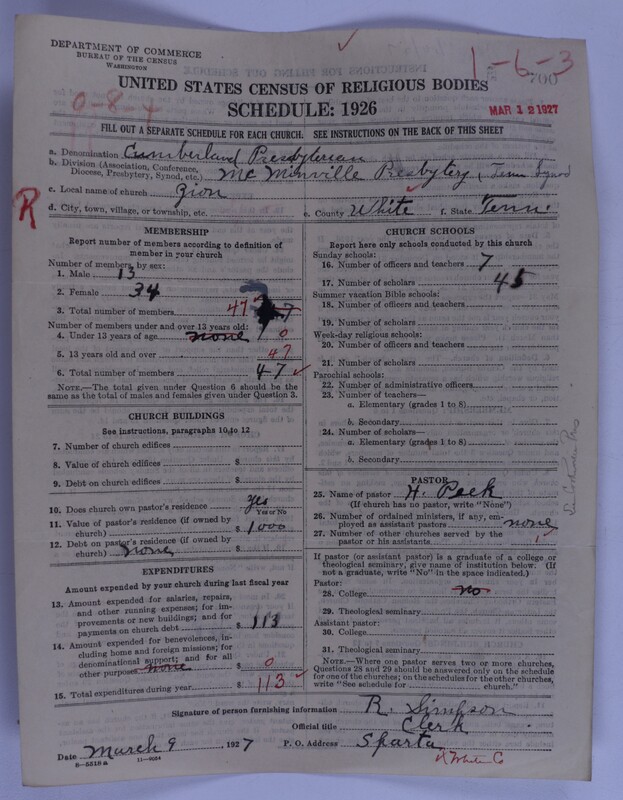 DEPARTMENT OF COMMERCE
BUREAU OF THE CENSUS
WASHINGTON
1-6-3
700
0-8-4
UNITED STATES CENSUS OF RELIGIOUS BODIES
SCHEDULE: 1926
MAR 12 1927
FILL OUT A SEPARATE SCHEDULE FOR EACH CHURCH. SEE INSTRUCTIONS ON THE BACK OF THIS SHEET
a. Denomination Cumberland Presbyterian
b. Division (Association, Conference, Diocese, Presbytery, Synod, etc.) McMinville Presbytery (Tenn Synod
c. Local name of church Gion
R
d. City, town, village, or township, etc. e. County White f. State Tenn
MEMBERSHIP
Report number of members according to definition of
member in your church
Number of members, by sex:
1. Male 13
2. Female 34
3. Total number of members 47
Number of members under and over 13 years old:
4. Under 13 years of age none 0
5. 13 years old and over 47
6. Total number of members 47
NOTE.—The total given under Question 6 should be
same as the total of males and females given under Question 3.
CHURCH BUILDINGS
See instructions, paragraphs 10 to 12
7. Number of church edifices
8. Value of church edifices $
9. Debt on church edifices $
10. Does church own pastor's residence yes
Yes or No
11. Value of pastor's residence (if owned by
church) $ 1000
12. Debt on pastor's residence (if owned by
church) none $
EXPENDITURES
Amount expended by your church during last fiscal year
13. Amount expended for salaries, repairs,
and other running expenses; for im-
provements or new buildings; and for
payments on church debt $ 113
14. Amount expended for benevolences, in-
cluding home and foreign missions; for
denominational support; and for all
other purposes none $ 0
15. Total expenditures during year $ 113
CHURCH SCHOOLS
Report here only schools conducted by this church
Sunday schools:
16. Number of officers and teachers 7
17. Number of scholars 45
Summer vacation Bible schools:
18. Number of officers and teachers
19. Number of scholars
Week-day religious schools:
20. Number of officers and teachers
21. Number of scholars
Parochial schools:
22. Number of administrative officers
23. Number of teachers—
a. Elementary (grades 1 to 8)
b. Secondary
24. Number of scholars—
a. Elementary (grades 1 to 8)
b. Secondary
PASTOR
25. Name of pastor H. Peek
(If church has no pastor, write "None")
26. Number of ordained ministers, if any, em-
ployed as assistant pastors none
27. Number of other churches served by the
pastor or his assistants 1
If pastor (or assistant pastor) is a graduate of a college or
theological seminary, give name of institution below: (If
not a graduate, write "No" in the space indicated.)
Pastor:
28. College no
29. Theological seminary
Assistant pastor:
30. College
31. Theological seminary
NOTE.—Where one pastor serves two or more churches,
Questions 28 and 29 should be answered only on the schedule
for one of the churches; on the schedules for the other churches,
write "See schedule for church."
Signature of person furnishing information R. Simpson
Official title Clerk
Date March 9, 1927 P. O. Address Sparta
White Co
8-5318a 11-9024